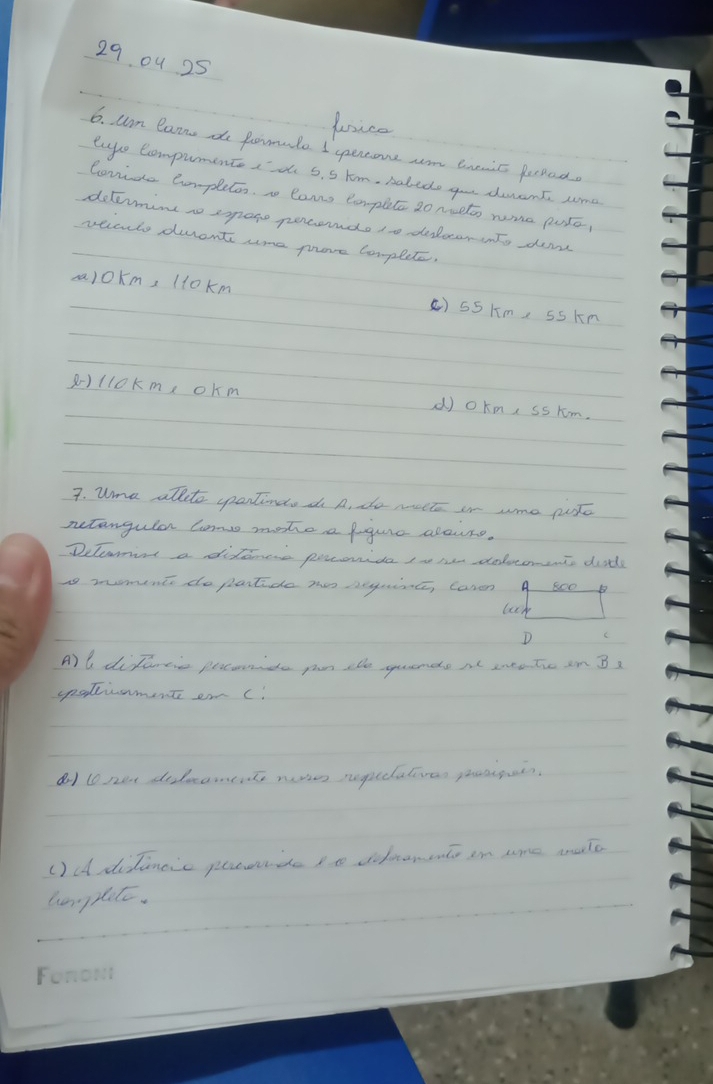 29.04.25
física
6. Um carro de fórmula 1 percorre um circuito fechado
cujo comprimento é de 5,5 km. sabedo que durante uma
corrida completas o carro completa 20 voltas nessa pista,
determine o espaço percorrido e o deslocamento desse
veículo durante uma prova completa.
a) 0 Km e 110 Km
c) 55 Km e 55 Km
b) 110 Km e 0 Km
d) 0 Km e 55 Km.
7. Uma atleta partindo de A, da volta em uma pista
retangular como mostra a figura abaixo.
Determine a distância percorrida e o seu deslocamento desde
o momento da partida nos seguintes, casos
A 800 B
D C
A) A distância percorrida por ela quando se encontra em B e
posteriormente em C:
b) O seu deslocamento nessas respectativas posições.
c) A distância percorrida e o deslocamento em uma volta
completa.
FORONI